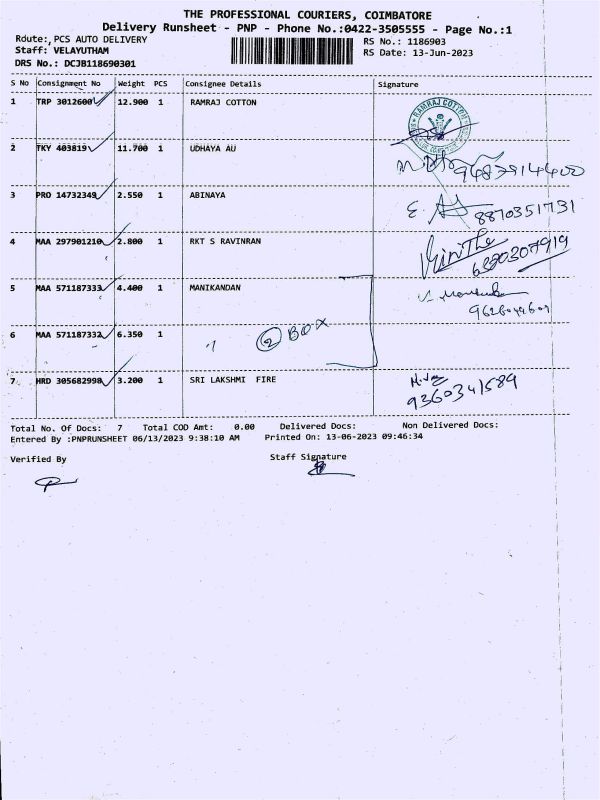 THE PROFESSIONAL COURIERS, COIMBATORE
Delivery Runsheet - PNP - Phone No.:0422-3505555 - Page No.:1
Rdute:, PCS AUTO DELIVERY
RS No.: 1186903
Staff: VELAYUTHAM
RS Date: 13-Jun-2023
DRS No.: DCJB118690301
S No Consignment No Weight PCS Consignee Details Signature
1 TRP 3012600 12.900 1 RAMRAJ COTTON
RAMRAJ COTTON
2 TKY 403819 11.700 1 UDHAYA AU
9487914400
3 PRO 14732349 2.550 1 ABINAYA
8870351731
4 MAA 297901210 2.800 1 RKT S RAVINRAN
6380307919
5 MAA 571187333 4.400 1 MANIKANDAN
6 MAA 571187332 6.350 1 " 2 BOX
7 HRD 305682998 3.200 1 SRI LAKSHMI FIRE
9360341589
Total No. Of Docs: 7 Total COD Amt: 0.00 Delivered Docs: Non Delivered Docs:
Entered By :PNPRUNSHEET 06/13/2023 9:38:10 AM Printed On: 13-06-2023 09:46:34
Verified By
Staff Signature